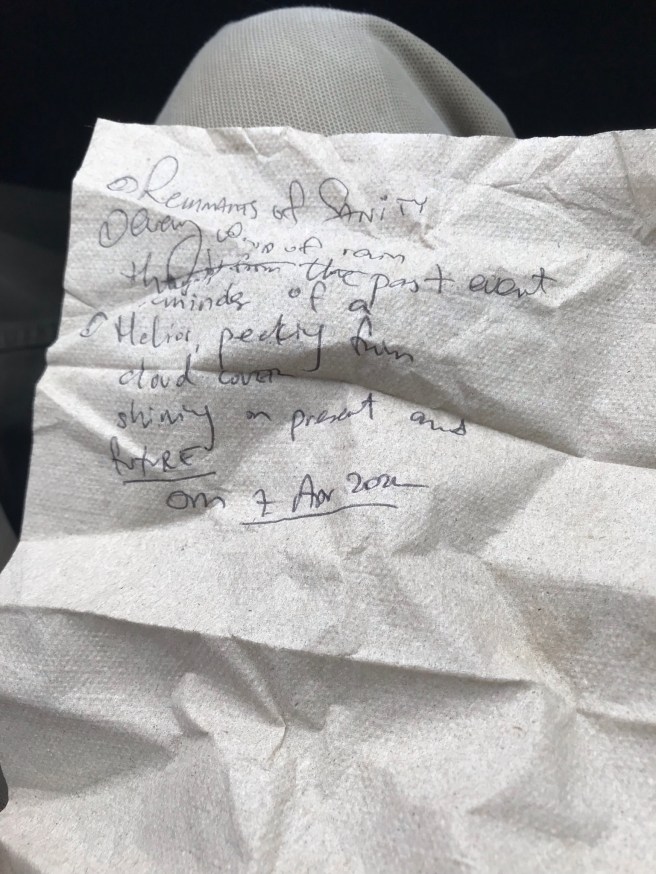 Remnants of SANITY
Every drop of rain
that
minds of a past event
Helios, peeking from
cloud cover
shining on present and
futuRE
om 7 Apr